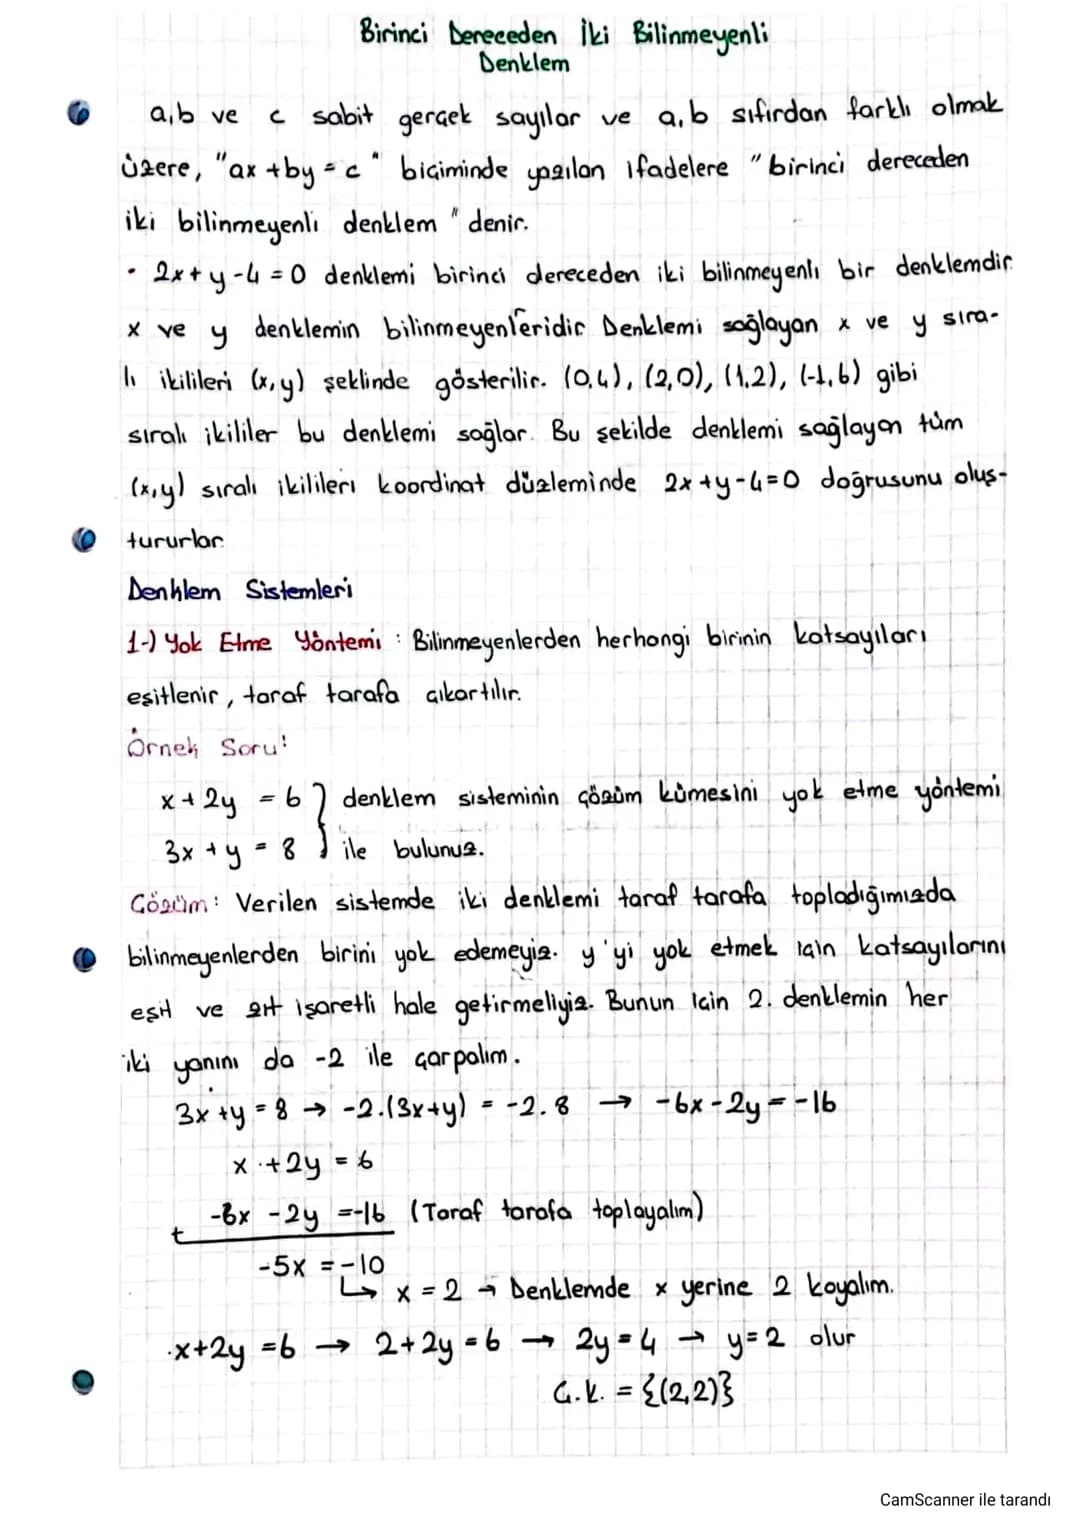 Birinci Dereceden İki Bilinmeyenli
Denklem
a,b ve c sabit gerçek sayılar ve a,b sıfırdan farklı olmak
üzere, "ax+by=c" biçiminde yazılan ifadelere "birinci dereceden
iki bilinmeyenli denklem" denir.
• 2x+y-4=0 denklemi birinci dereceden iki bilinmeyenli bir denklemdir.
x ve y denklemin bilinmeyenleridir. Denklemi sağlayan x ve y sıra-
lı ikilileri (x,y) şeklinde gösterilir. (0,4), (2,0), (1,2), (-1,6) gibi
sıralı ikililer bu denklemi sağlar. Bu şekilde denklemi sağlayan tüm
(x,y) sıralı ikilileri koordinat düzleminde 2x+y-4=0 doğrusunu oluş-
tururlar.
Denklem Sistemleri
1-) Yok Etme Yöntemi : Bilinmeyenlerden herhangi birinin katsayıları
eşitlenir, taraf tarafa çıkartılır.
Örnek Soru:
x+2y = 6 } denklem sisteminin çözüm kümesini yok etme yöntemi
3x+y = 8 } ile bulunuz.
Çözüm: Verilen sistemde iki denklemi taraf tarafa topladığımızda
bilinmeyenlerden birini yok edemeyiz. y'yi yok etmek için katsayılarını
eşit ve zıt işaretli hale getirmeliyiz. Bunun için 2. denklemin her
iki yanını da -2 ile çarpalım.
3x+y=8 → -2.(3x+y) = -2.8 → -6x-2y=-16
x+2y = 6
-6x -2y =-16 (Taraf tarafa toplayalım)
+
-5x = -10
↳ x = 2 → Denklemde x yerine 2 koyalım.
x+2y =6 → 2+2y=6 → 2y=4 → y=2 olur
Ç.K. = {(2,2)}
CamScanner ile tarandı